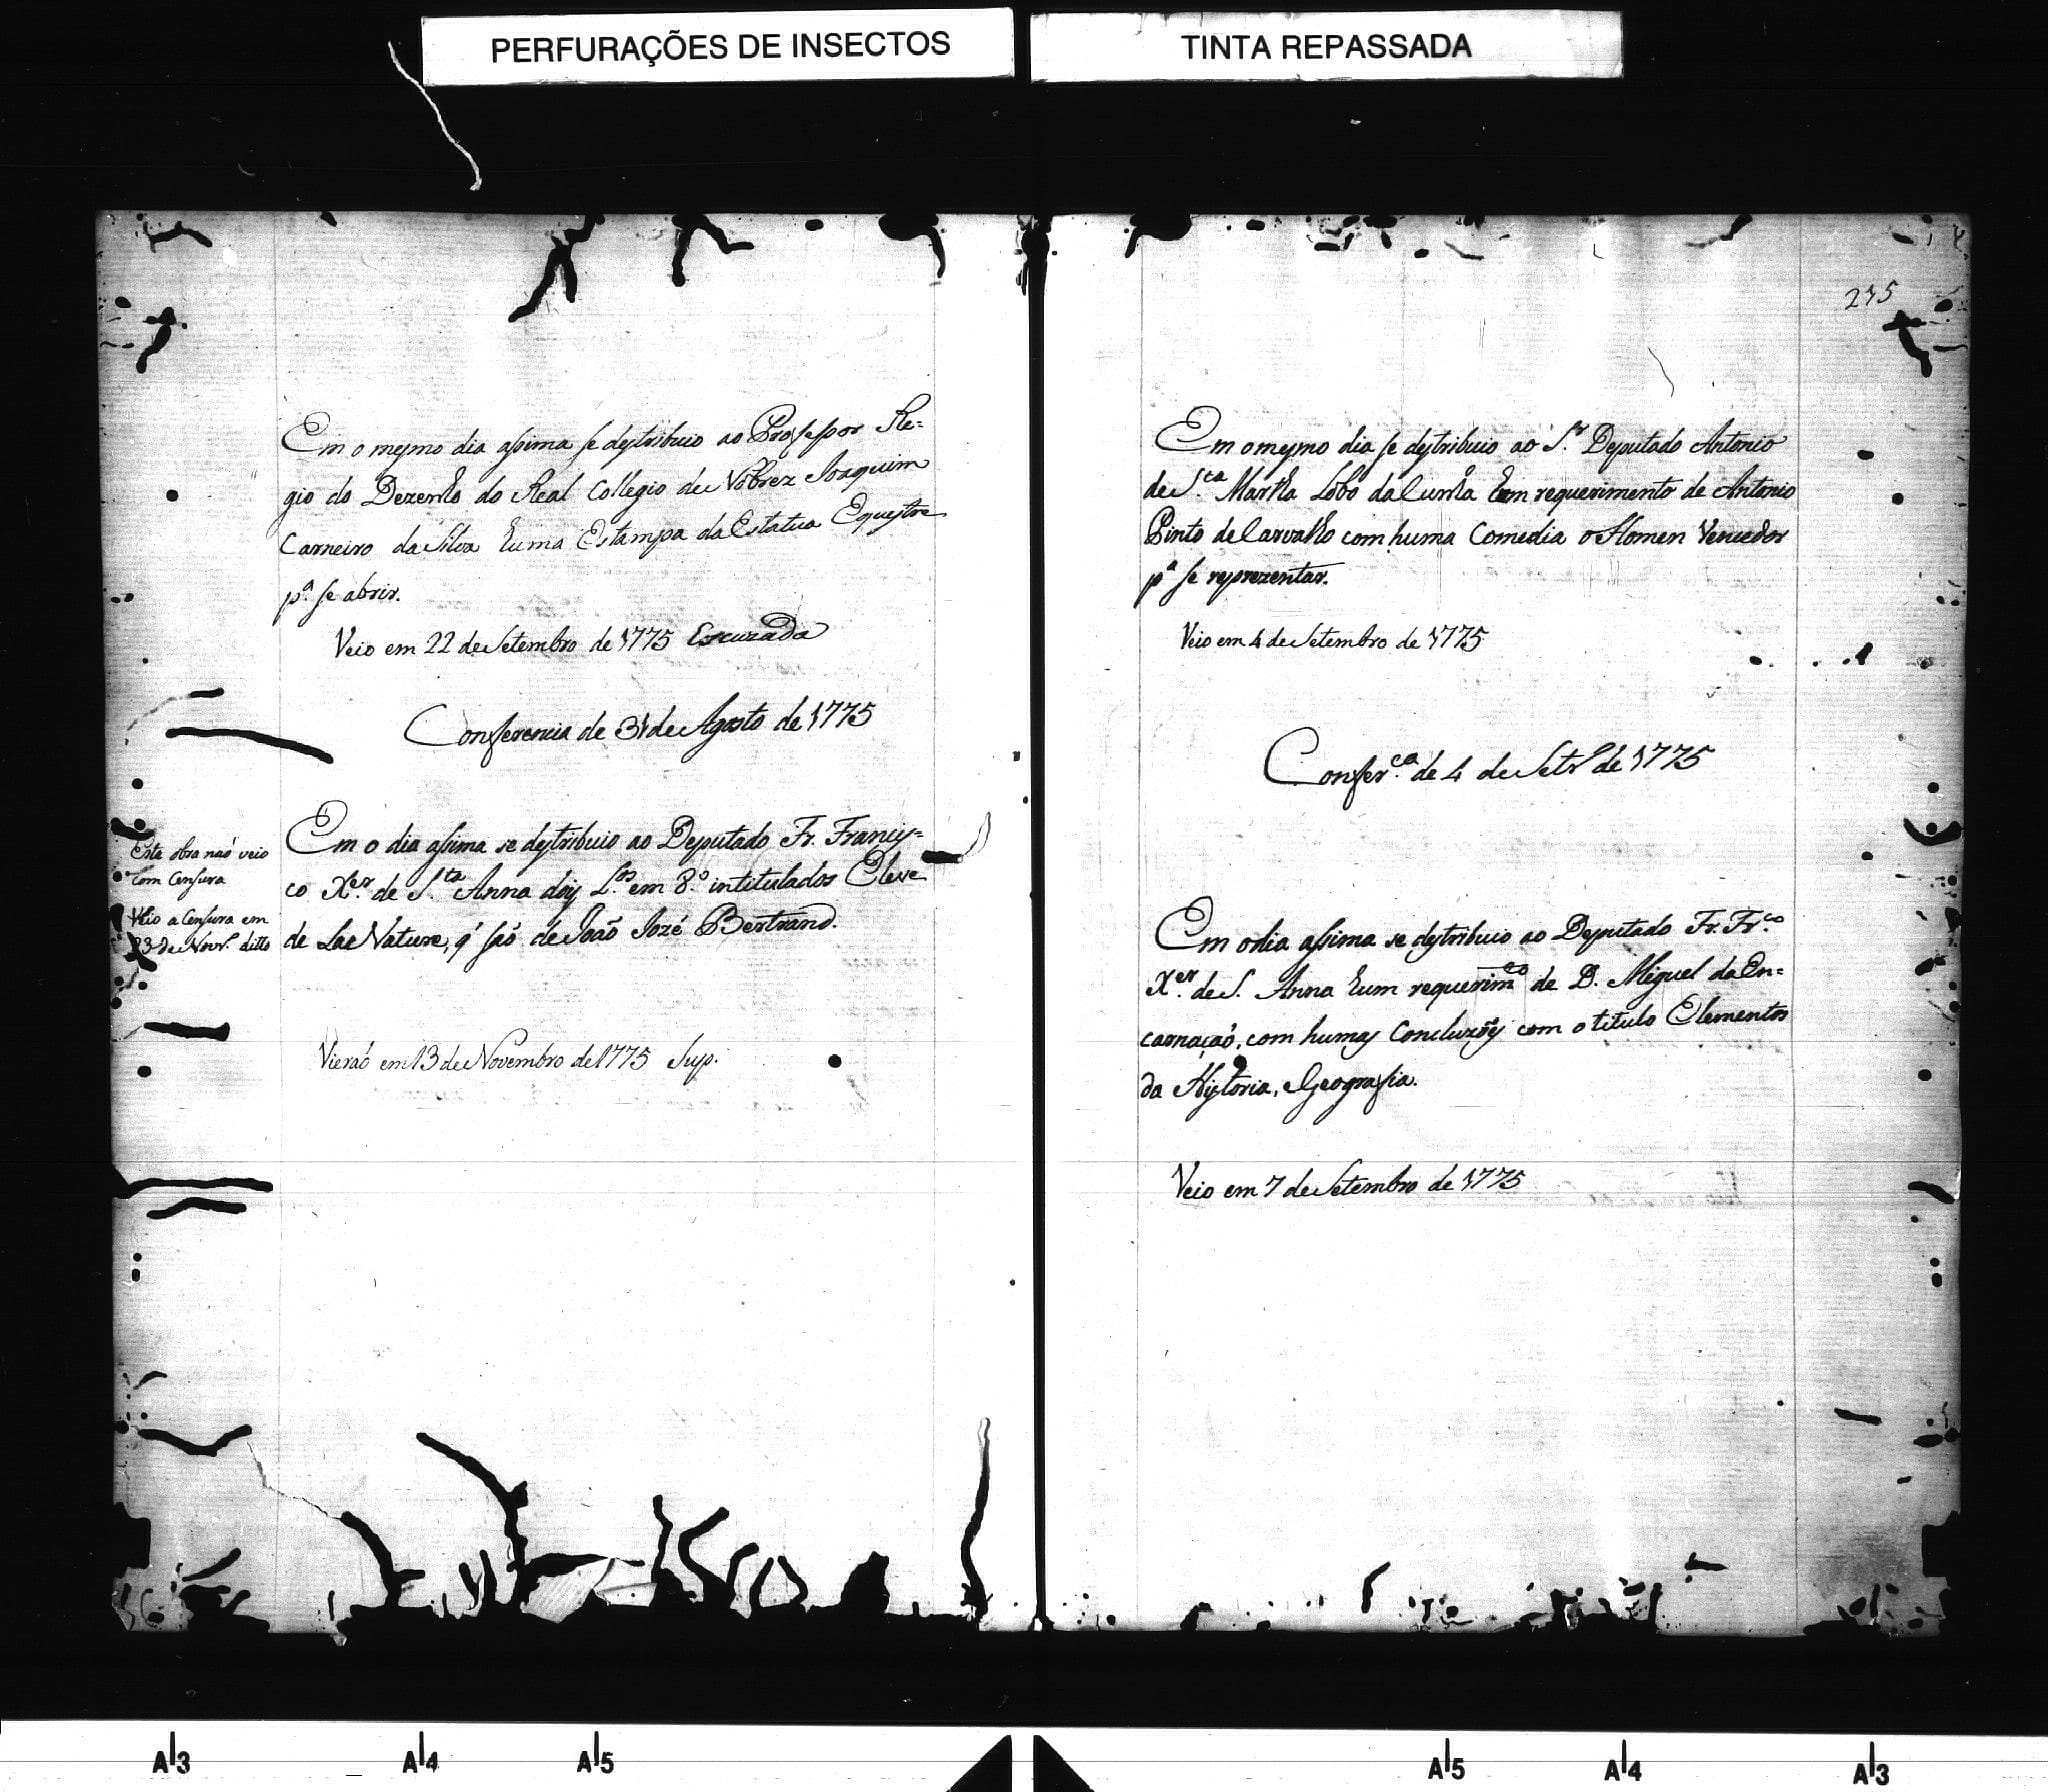 PERFURAÇÕES DE INSECTOS
TINTA REPASSADA
Em o mesmo dia assima se destribuio ao Professor Re=
gio do Dezenho do Real Collegio de Nobrez Joaquim
Carneiro da Silva huma Estampa da Estatua Equestre
p.ª se abrir.
Veio em 22 de Setembro de 1775 Escuzada
Conferencia de 31 de Agosto de 1775
Em o dia assima se destribuio ao Deputado Fr. Francis=
co X.er de S.ta Anna dois L.os em 8.º intitulados Eleve
de Lae Nature, q' saõ de João Jozé Bertrand.
Esta obra naõ veio
com Censura
Veio a Censura em
23 de Novr.º ditto
Vieraõ em 13 de Novembro de 1775 Sup.
215
Em o mesmo dia se destribuio ao S.r Deputado Antonio
de S.ta Martha Lobo da Cunha hum requerimento de Antonio
Pinto de Carvalho com huma Comedia o Homen Vencedor
p.ª se reprezentar.
Veio em 4 de Setembro de 1775
Confer.ca de 4 de Setr.º de 1775
Em o dia assima se destribuio ao Deputado Fr. Fr.co
X.er de S. Anna hum requerim.to de D. Miguel da En=
carnaçaõ, com humas Concluzões com o titulo Elementos
da Historia, e Geografia.
Veio em 7 de Setembro de 1775
A3
A4
A5
A5
A4
A3